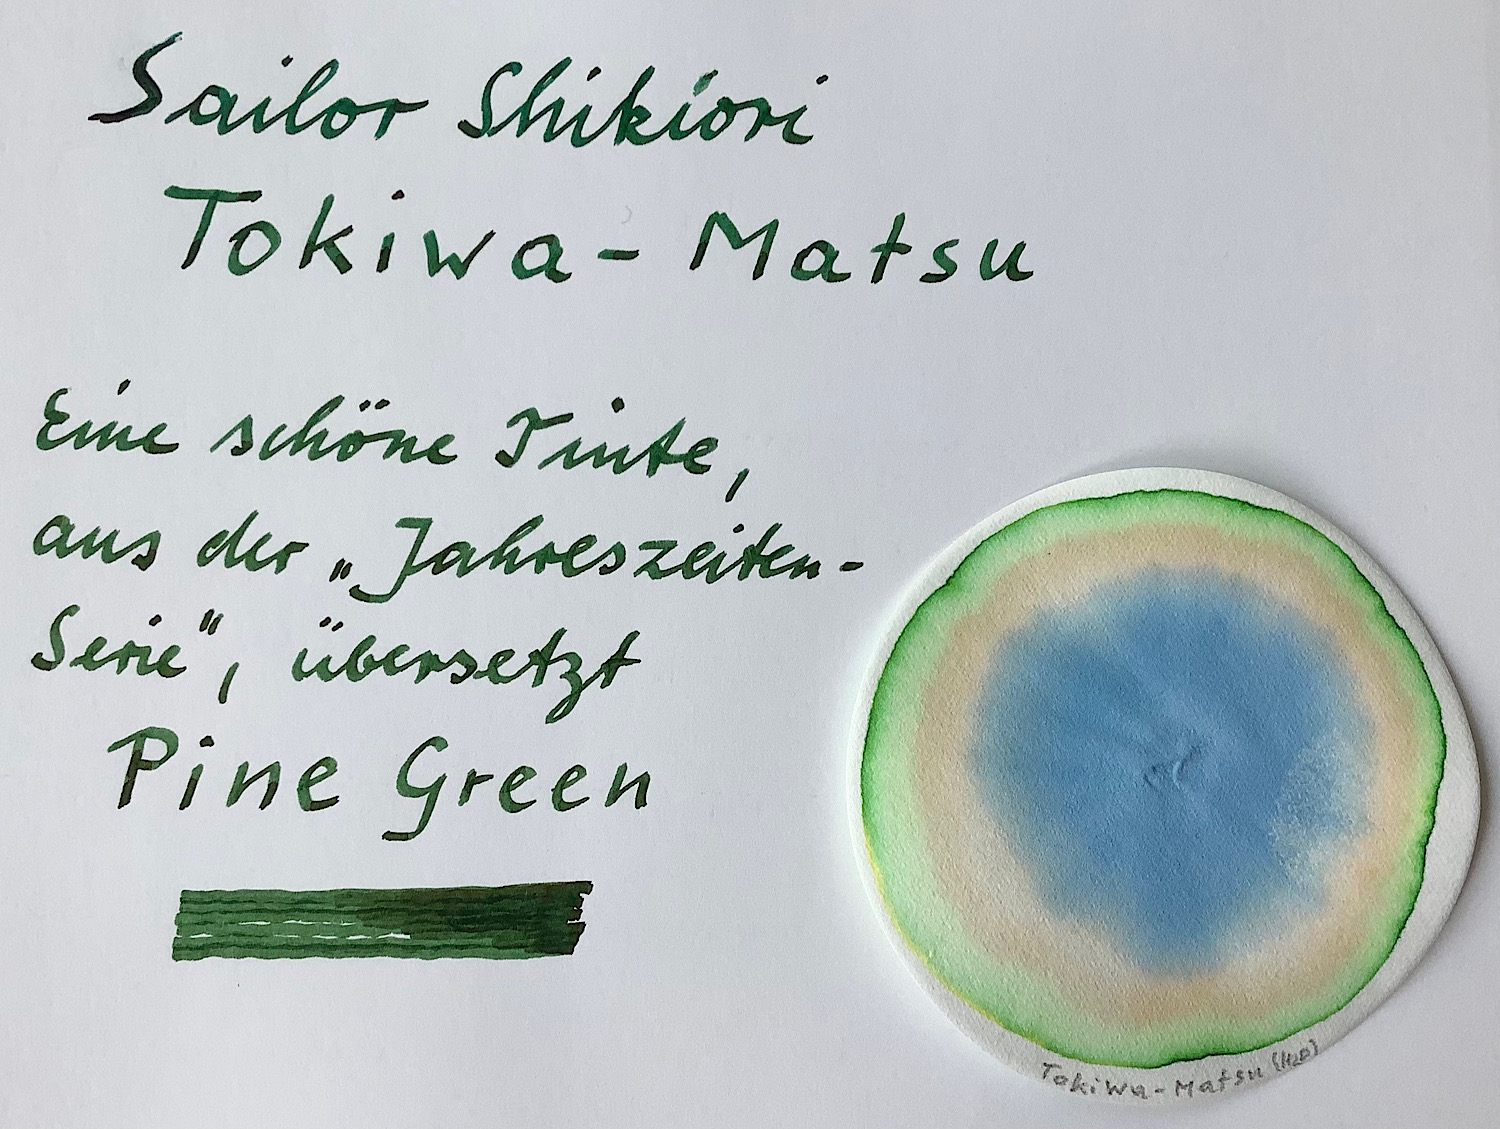 Sailor Shikiori
Tokiwa-Matsu
Eine schöne Tinte,
aus der „Jahreszeiten-
Serie", übersetzt
Pine Green
Tokiwa-Matsu (H2O)